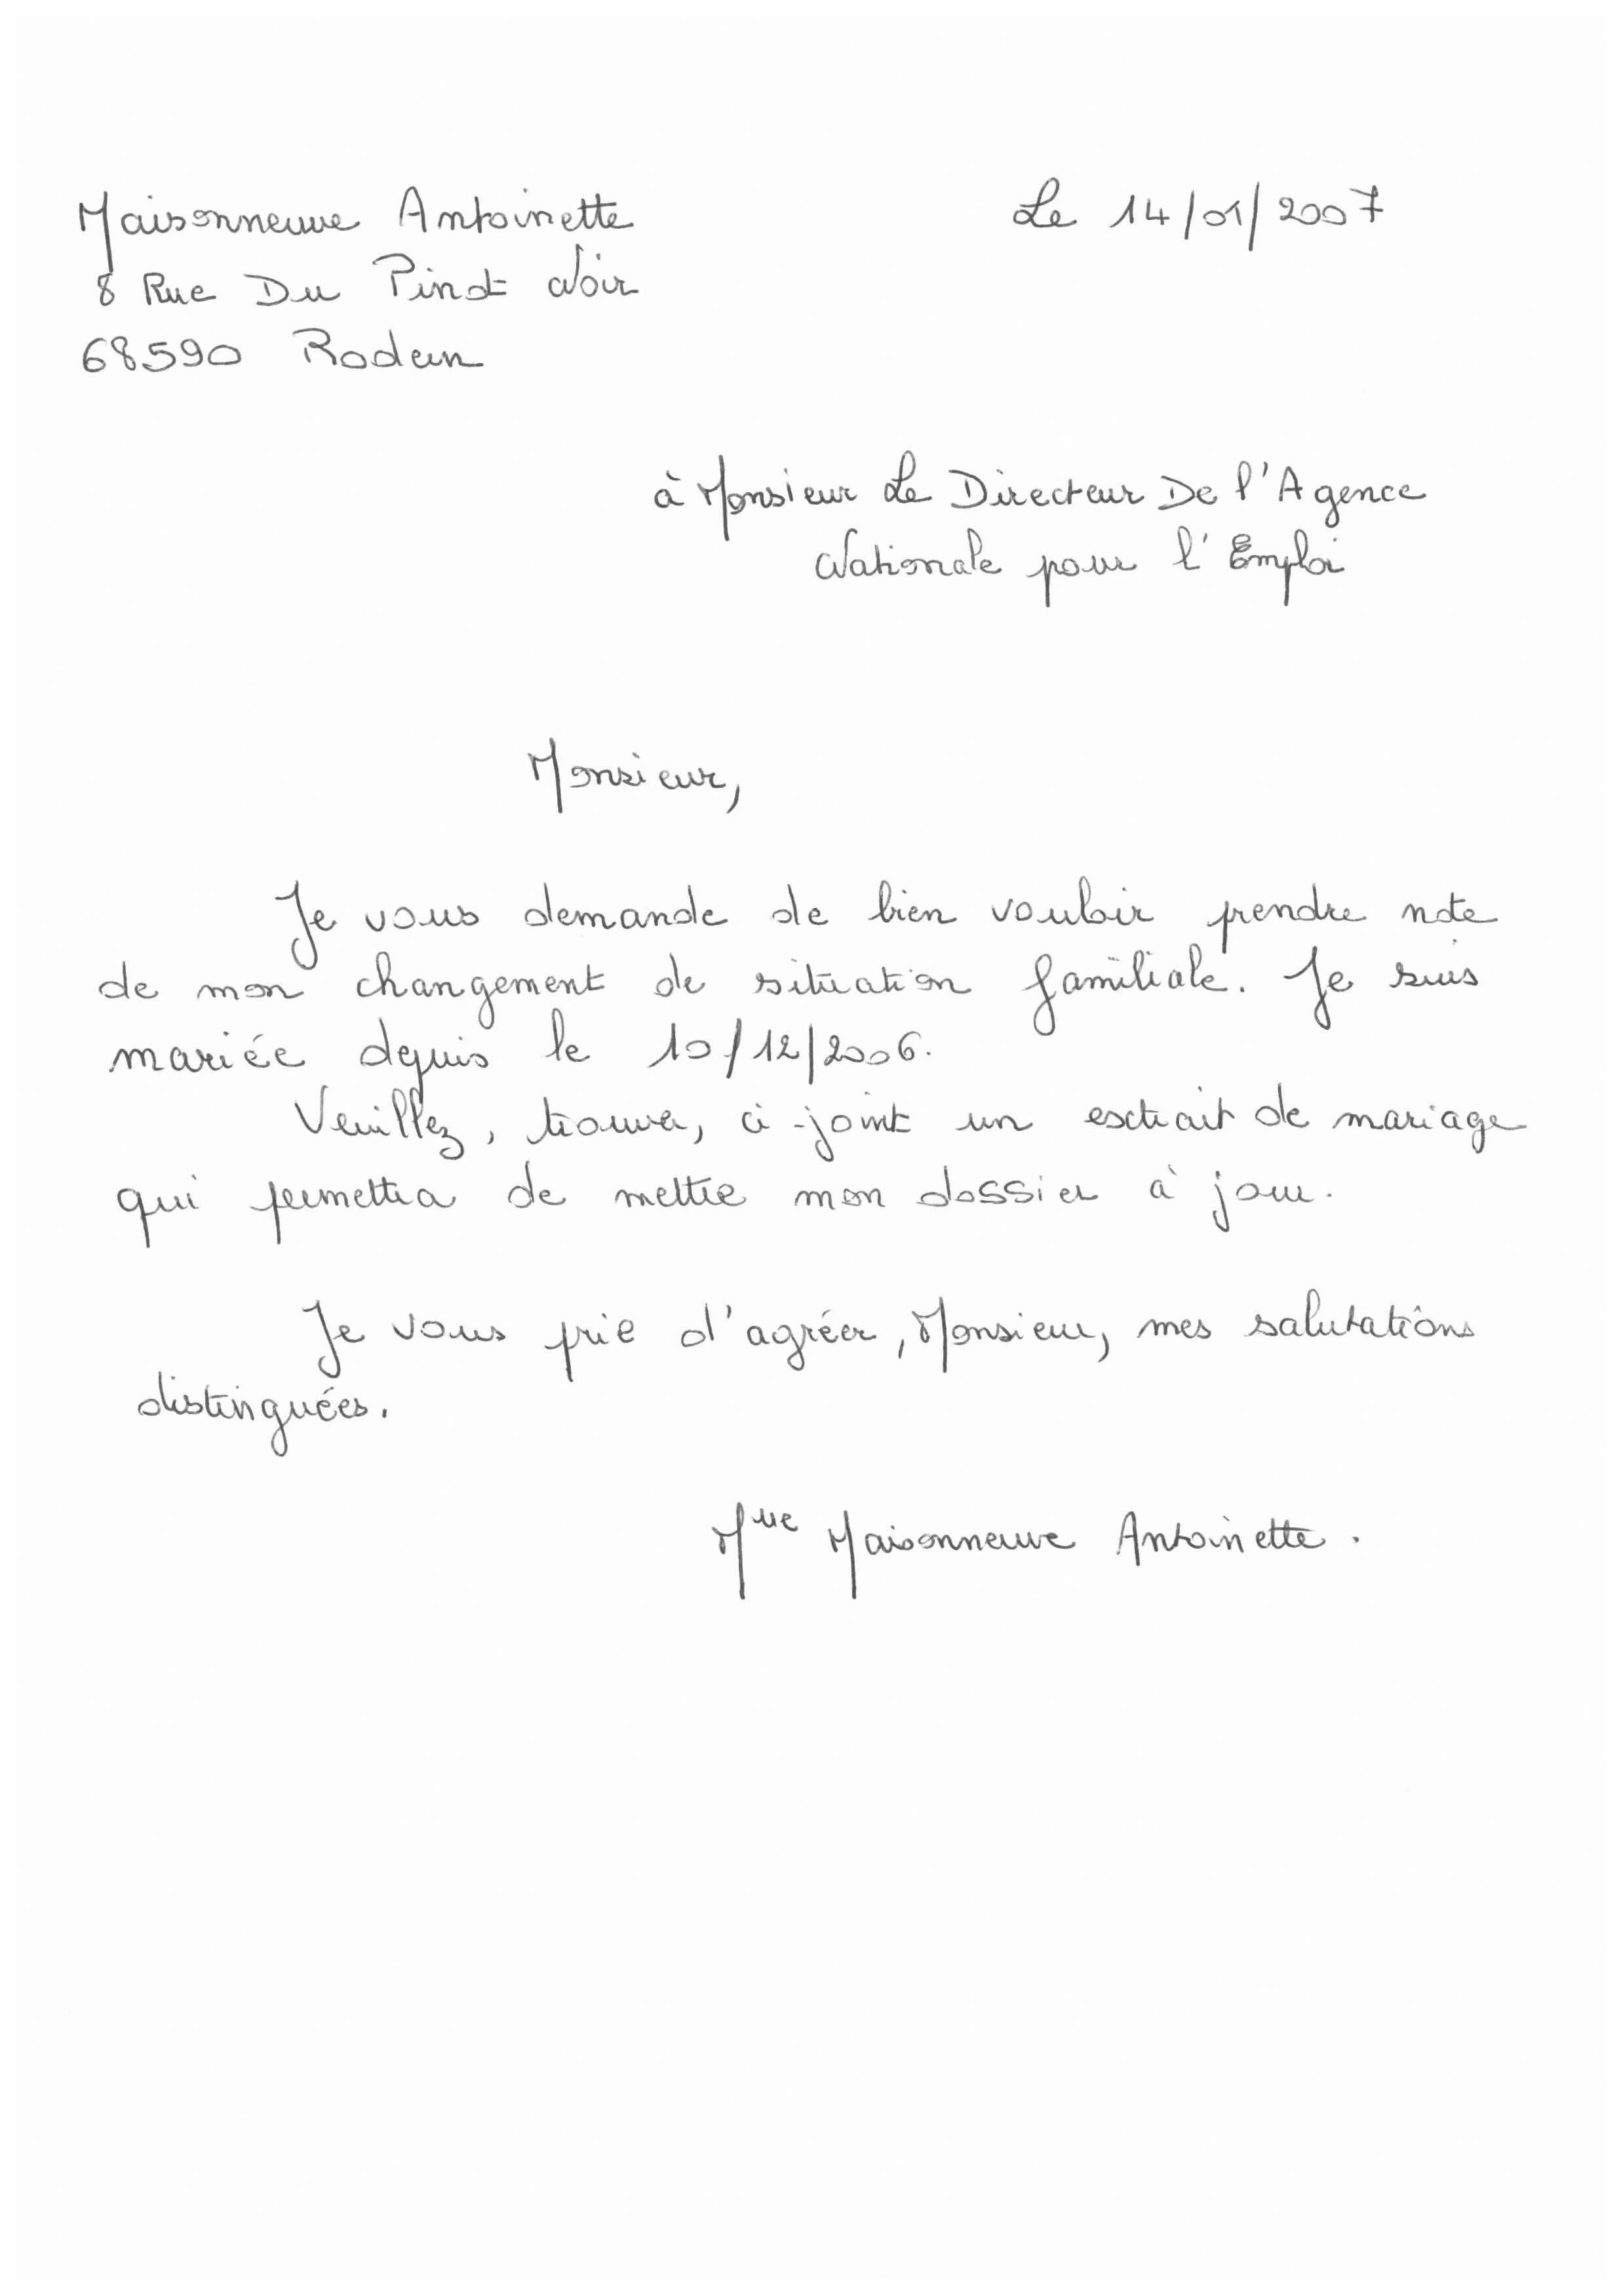 Maisonneuve Antoinette
Le 14/01/2007
8 Rue Du Pinot Noir
68590 Rodern
à Monsieur Le Directeur De l'Agence
Nationale pour l'Emploi
Monsieur,
Je vous demande de bien vouloir prendre note
de mon changement de situation familiale. Je suis
mariée depuis le 10/12/2006.
Veuillez, trouver, ci-joint un extrait de mariage
qui permettra de mettre mon dossier à jour.
Je vous prie d'agréer, Monsieur, mes salutations
distinguées.
Maisonneuve Antoinette.